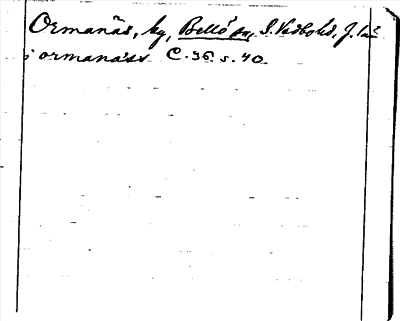 Ormanäs, by, Bellö sn, S. Vedbo hd, J. län
i ormanäss C. 36. s. 40.